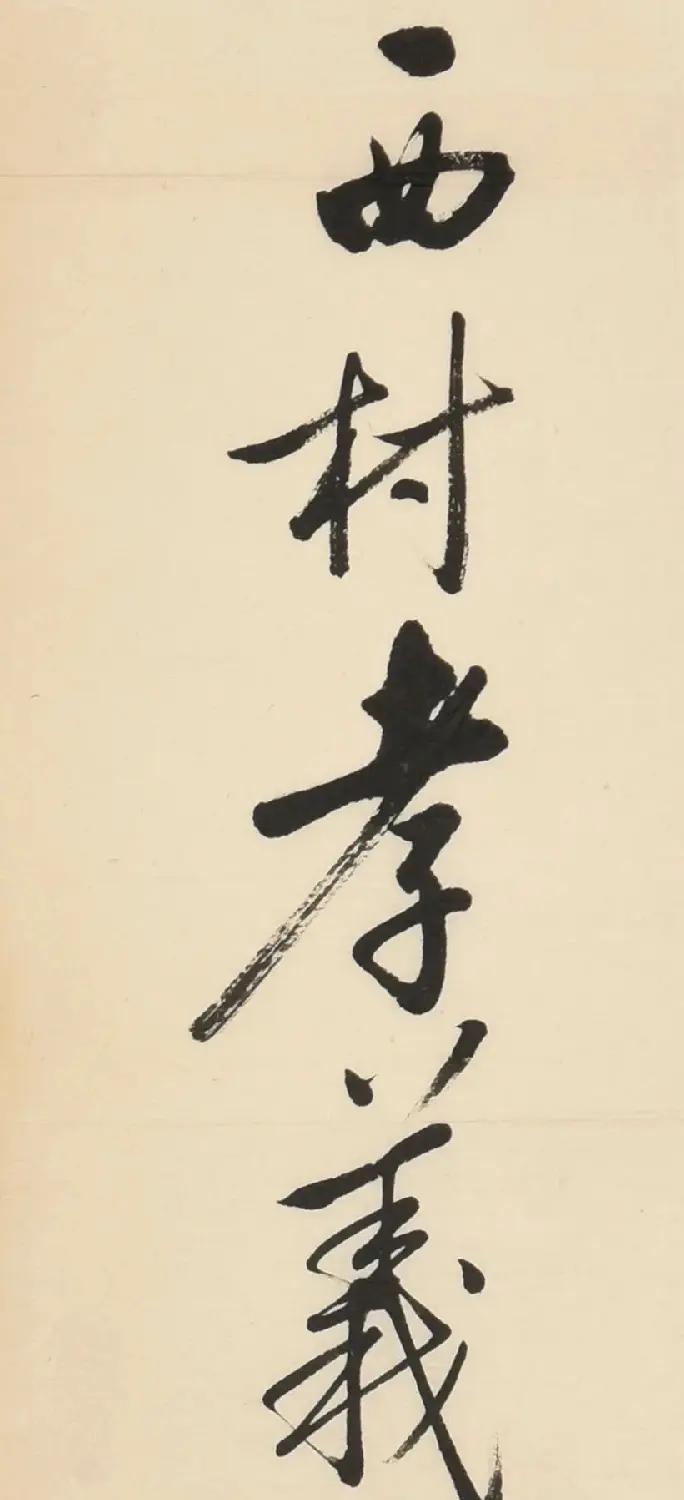 西村孝義